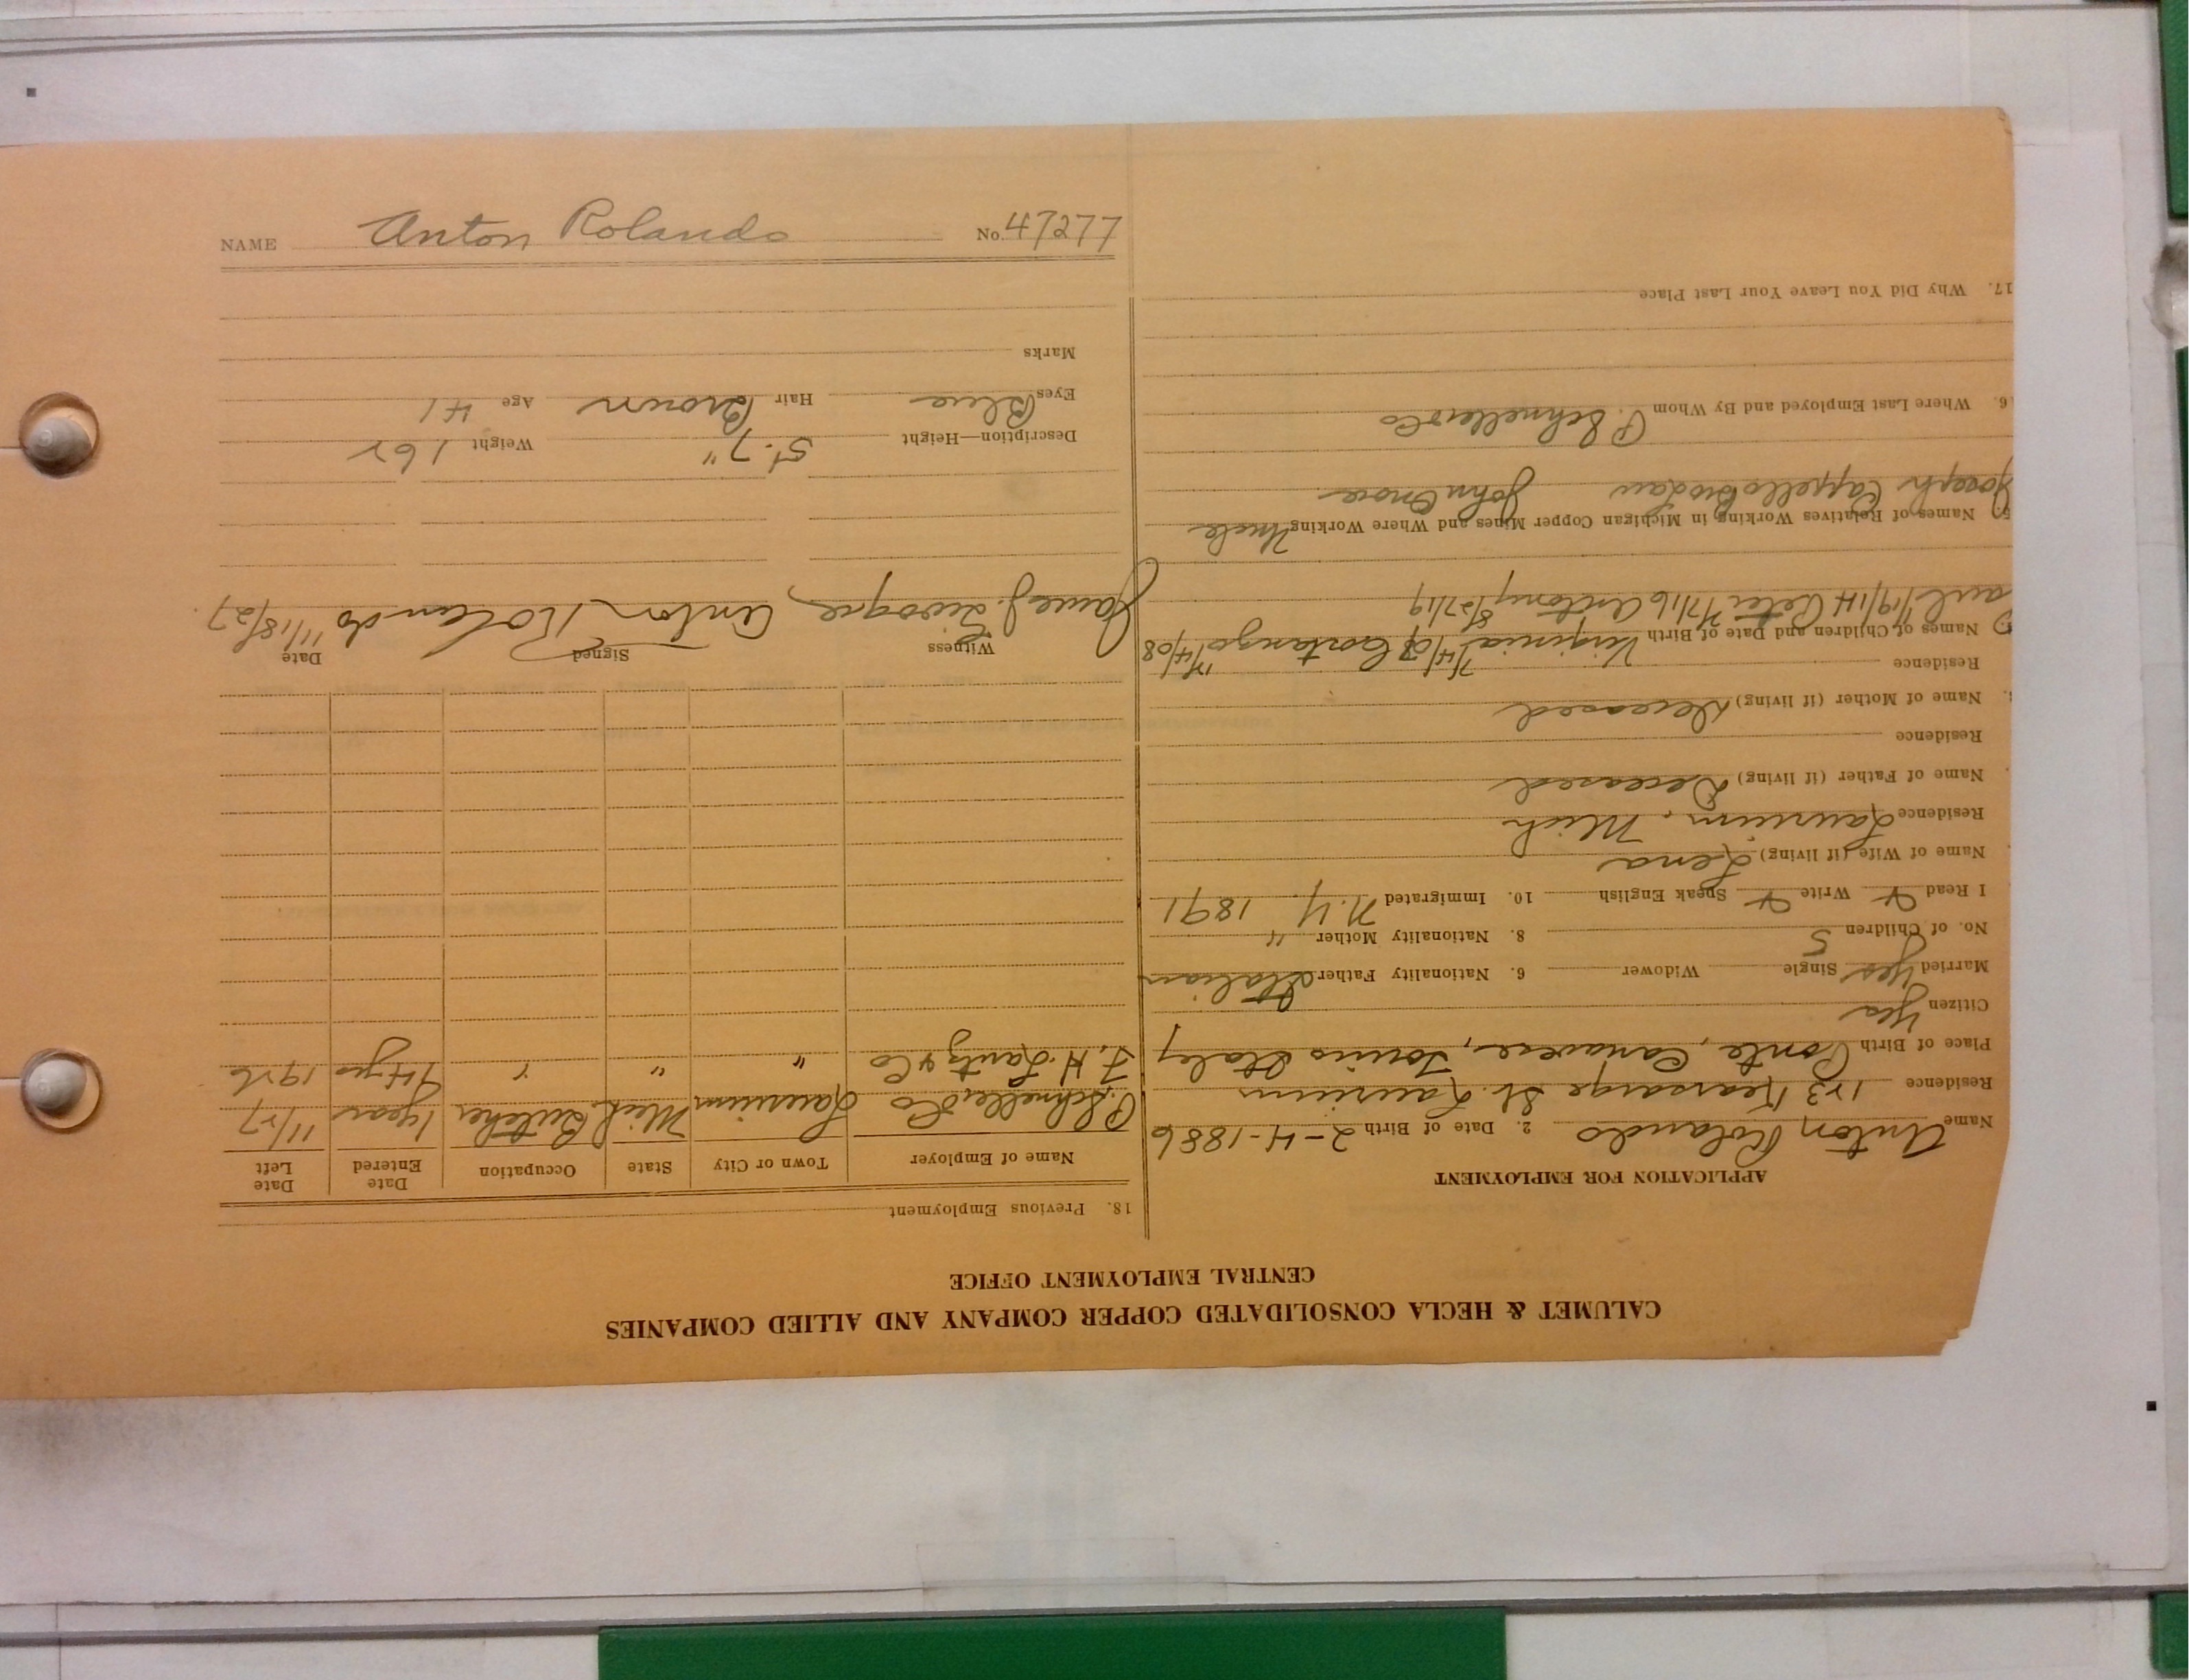 NAME Anton Rolando No. 47277
CALUMET & HECLA CONSOLIDATED COPPER COMPANY AND ALLIED COMPANIES
CENTRAL EMPLOYMENT OFFICE
APPLICATION FOR EMPLOYMENT
Name Anton Rolando 2. Date of Birth 2-4-1886
Residence 123 Kearsarge St. Laurium
Place of Birth Ponte, Canavese, Torino Italy
Citizen Yes
Married Yes Single Widower 6. Nationality Father Italian
No. of Children 5 8. Nationality Mother "
I Read Write Speak English 10. Immigrated N.Y. 1891
Name of Wife (if living) Lena
Residence Laurium, Mich
Name of Father (if living) Deceased
Residence
Name of Mother (if living) Deceased
Residence
Names of Children and Date of Birth Virginia 7/4/07 11/4/08
1/19/14 Peter 7/7/16 Antony 8/27/19
Names of Relatives Working in Michigan Copper Mines and Where Working Uncle
Joseph Cappello John
6. Where Last Employed and By Whom P. Schneller Co
17. Why Did You Leave Your Last Place
18. Previous Employment
Name of Employer Town or City State Occupation Date Entered Date Left
P. Schneller Co Laurium Mich Butcher 1 year 11/27
F. H. Lantz & Co " " " 14 yrs 1926
Witness Signed Date
James J. Anton Rolando 11/18/27.
Description—Height 5'.7" Weight 162
Eyes Blue Hair Brown Age 41
Marks